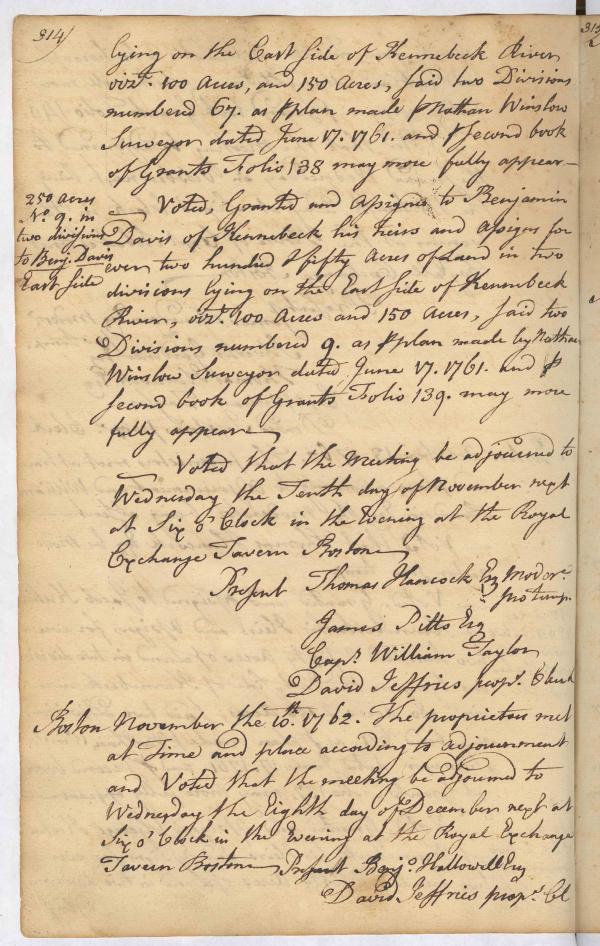 314
lying on the East side of Kennebeck River
vizt. 100 Acres, and 150 Acres, said two Divisions
numbered 67. as ⅌ plan made ⅌ Nathan Winslow
Surveyor dated June 17. 1761. and ⅌ second book
of Grants Folio 138 may more fully appear—
250 acres
No. 9. in
two divisions
to Benj. Davis
East side
Voted, Granted and assigned to Benjamin
Davis of Kennebeck his heirs and assigns for
ever two hundred & fifty Acres of Land in two
divisions lying on the East side of Kennebeck
River, vizt. 100 Acres and 150 Acres, said two
Divisions numbered 9. as ⅌ plan made by Nathan
Winslow Surveyor dated June 17. 1761. and ⅌
second book of Grants Folio 139. may more
fully appear
Voted that the Meeting be adjourned to
Wednesday the Tenth day of November next
at Six o'Clock in the Evening at the Royal
Exchange Tavern Boston
Present Thomas Hancock Esq Moder.
pro temp.
James Pitts Esq
Capt. William Taylor
David Jeffries propr. Clerk
Boston November the 10th. 1762. The proprietors met
at Time and place according to adjournment
and Voted that the meeting be adjourned to
Wednesday the Eighth day of December next at
Six o'Clock in the Evening at the Royal Exchange
Tavern Boston Present Benjo. Hallowell Esq
David Jeffries propr. Cl